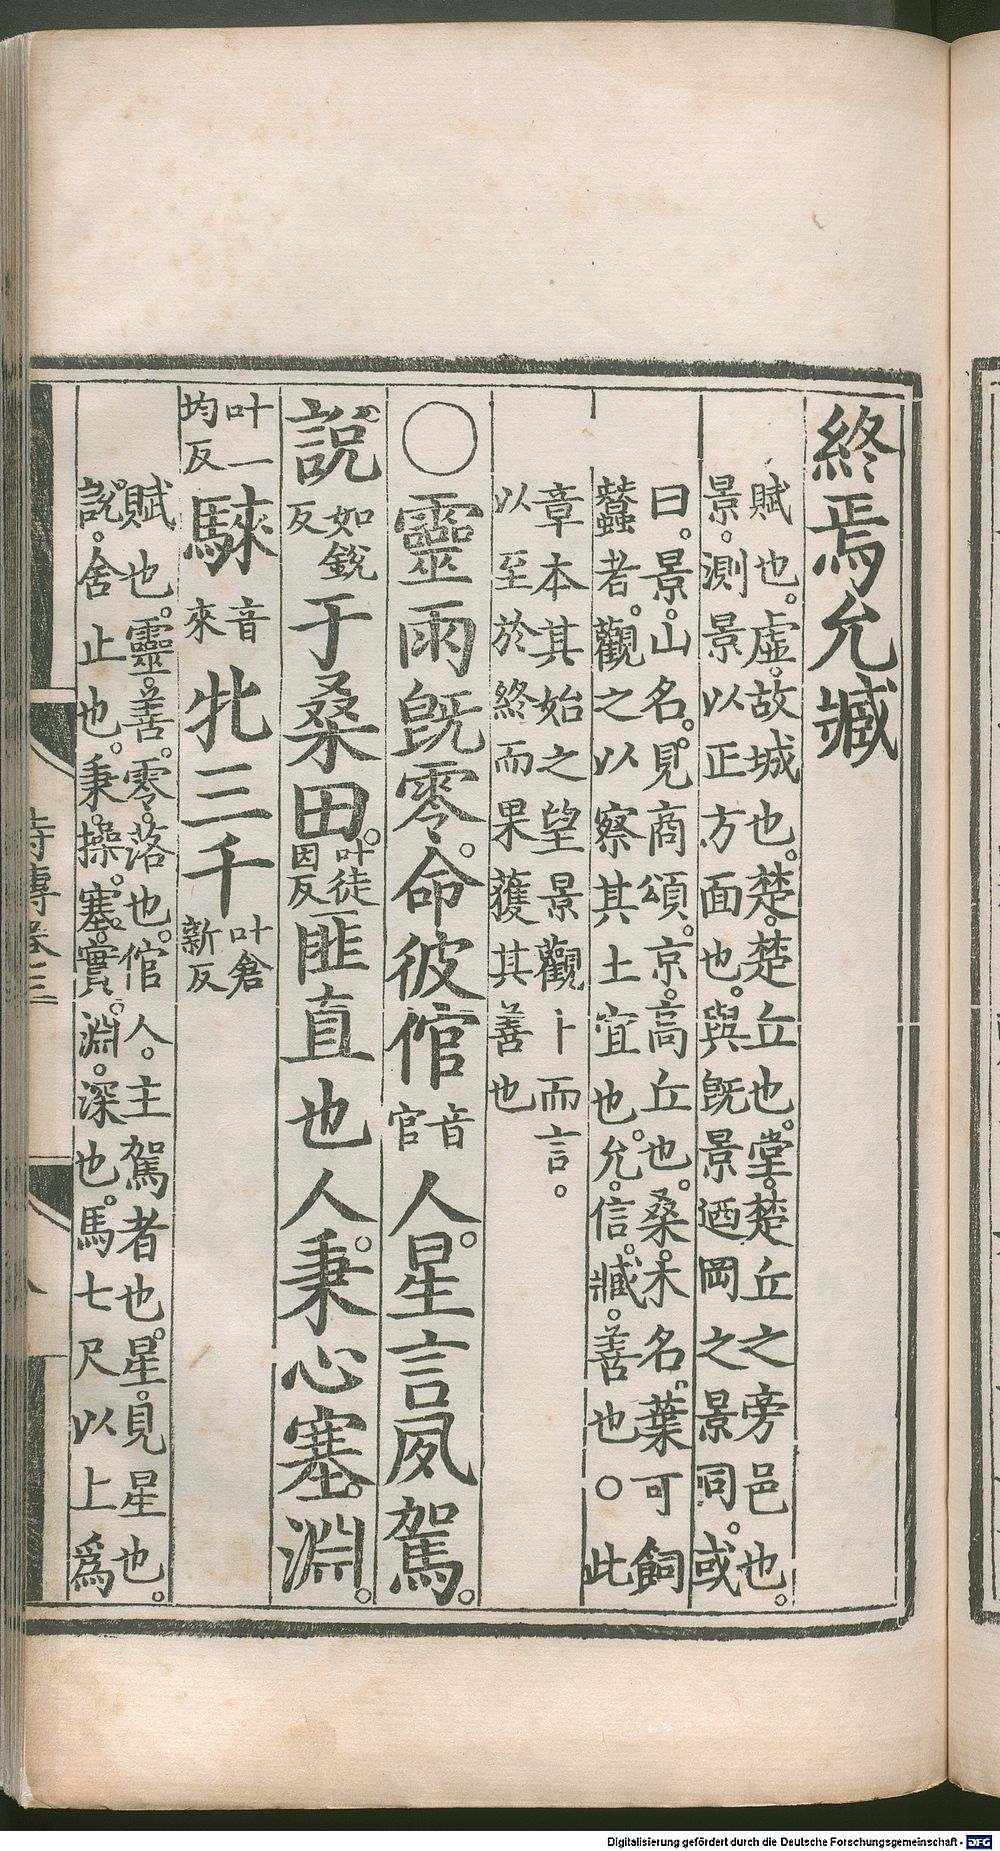 終焉允臧
賦也。虛。故城也。楚。楚丘也。堂。楚丘之旁邑也。
景。測景以正方面也。與旣景迺岡之景同。或
曰。景。山名。見商頌。京。高丘也。桑。木名。葉可飼
蠶者。觀之以察其土宜也。允。信。臧。善也○此
章本其始之望景觀卜而言。
以至於終而果獲其善也
○靈雨旣零。命彼倌音官人。星言夙駕。
說如銳反于桑田。叶徒因反匪直也人。秉心塞淵。
叶一均反騋音來牝三千叶倉新反
賦也。靈。善。零。落也。倌人。主駕者也。星。見星也。
說。舍止也。秉。操。塞。實。淵。深也。馬七尺以上爲
詩傳卷三
Digitalisierung gefördert durch die Deutsche Forschungsgemeinschaft - DFG